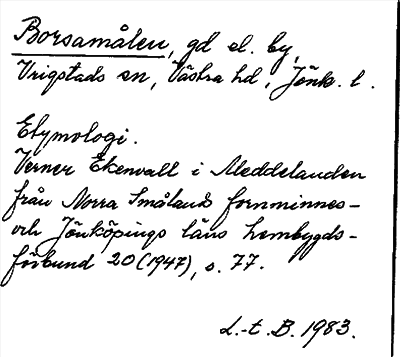 Borsamålen, gd el. by,
Vrigstads sn, Västra hd, Jönk. l.
Etymologi.
Verner Ekenvall i Meddelanden
från Norra Smålands fornminnes-
och Jönköpings läns hembygds-
förbund 20 (1947), s. 77.
L.-t. B. 1983.